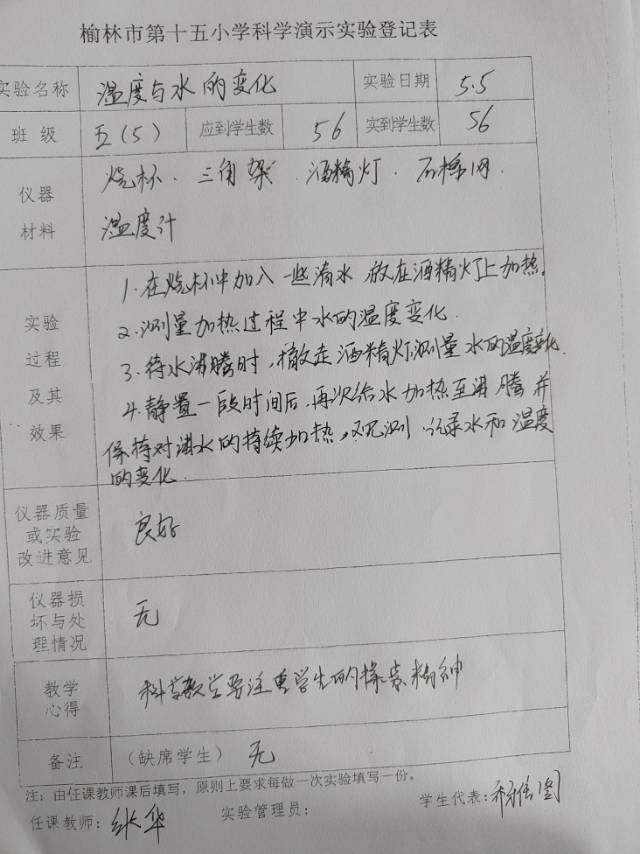 榆林市第十五小学科学演示实验登记表
实验名称 温度与水的变化 实验日期 5.5
班 级 五(5) 应到学生数 56 实到学生数 56
仪器材料 烧杯. 三角架. 酒精灯. 石棉网.
温度计
实验过程及其效果
1.在烧杯中加入一些清水 放在酒精灯上加热.
2.测量加热过程中水的温度变化.
3.待水沸腾时,撤走酒精灯,测量水的温度变化.
4.静置一段时间后.再次给水加热至沸腾并
保持对沸水的持续加热,观测.记录水和温度
的变化.
仪器质量或实验改进意见 良好
仪器损坏与处理情况 无
教学心得 科学教学要注重学生的探索精神
备注 (缺席学生) 无
注:由任课教师课后填写,原则上要求每做一次实验填写一份。
任课教师: 张华 实验管理员: 学生代表: